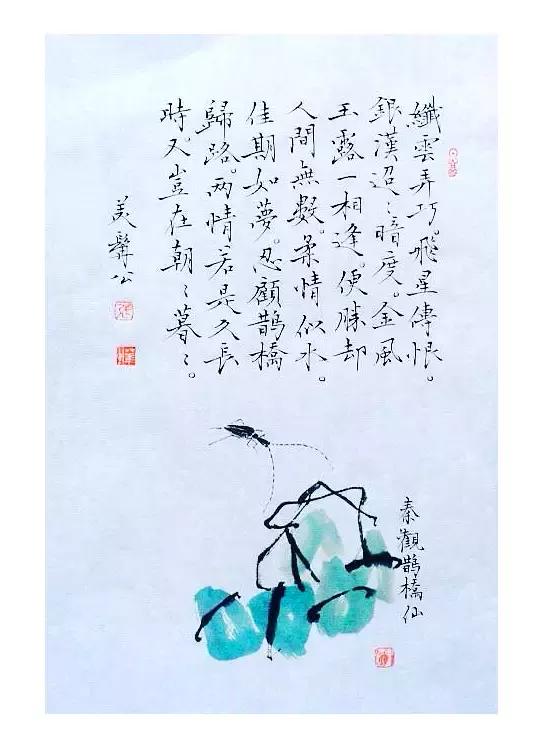 纖雲弄巧。飛星傳恨。
銀漢迢〻暗度。金風
玉露一相逢。便勝却
人間無數。柔情似水。
佳期如夢。忍顧鵲橋
歸路。两情若是久長
時。又豈在朝〻暮〻。
美髯公
秦觀鵲橋仙